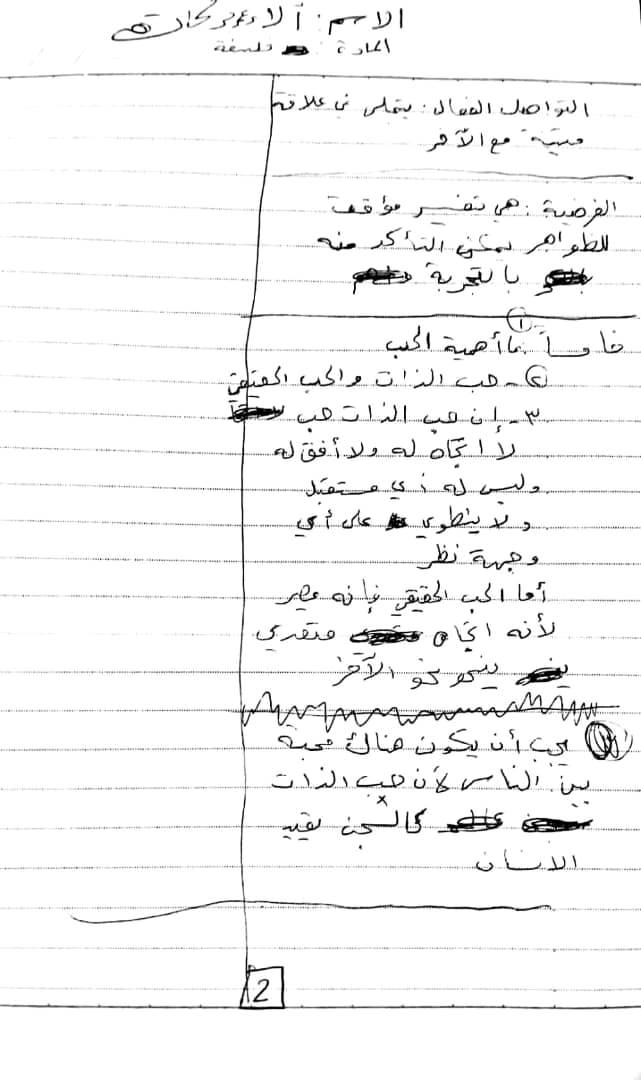 الاسم : آلاء
المادة : فلسفة
التواصل الفعال : يتجلى في علاقة
مبنية مع الآخر
الفرضية : هي تفسير مؤقت
للظواهر يمكن التأكد منه
بالتجربة
١
خامساً أهمية الحب
٢- حب الذات والحب الحقيقي
٣- إن حب الذات حب
لا اتجاه له ولا أفق له
وليس له أي مستقبل
ولا ينطوي على أي
وجهة نظر
أما الحب الحقيقي فإنه
لأنه اتجاه
ينحو نحو الآخر
يجب أن يكون هناك محبة
بين الناس لأن حب الذات
كالسجن يقيد
الانسان
2